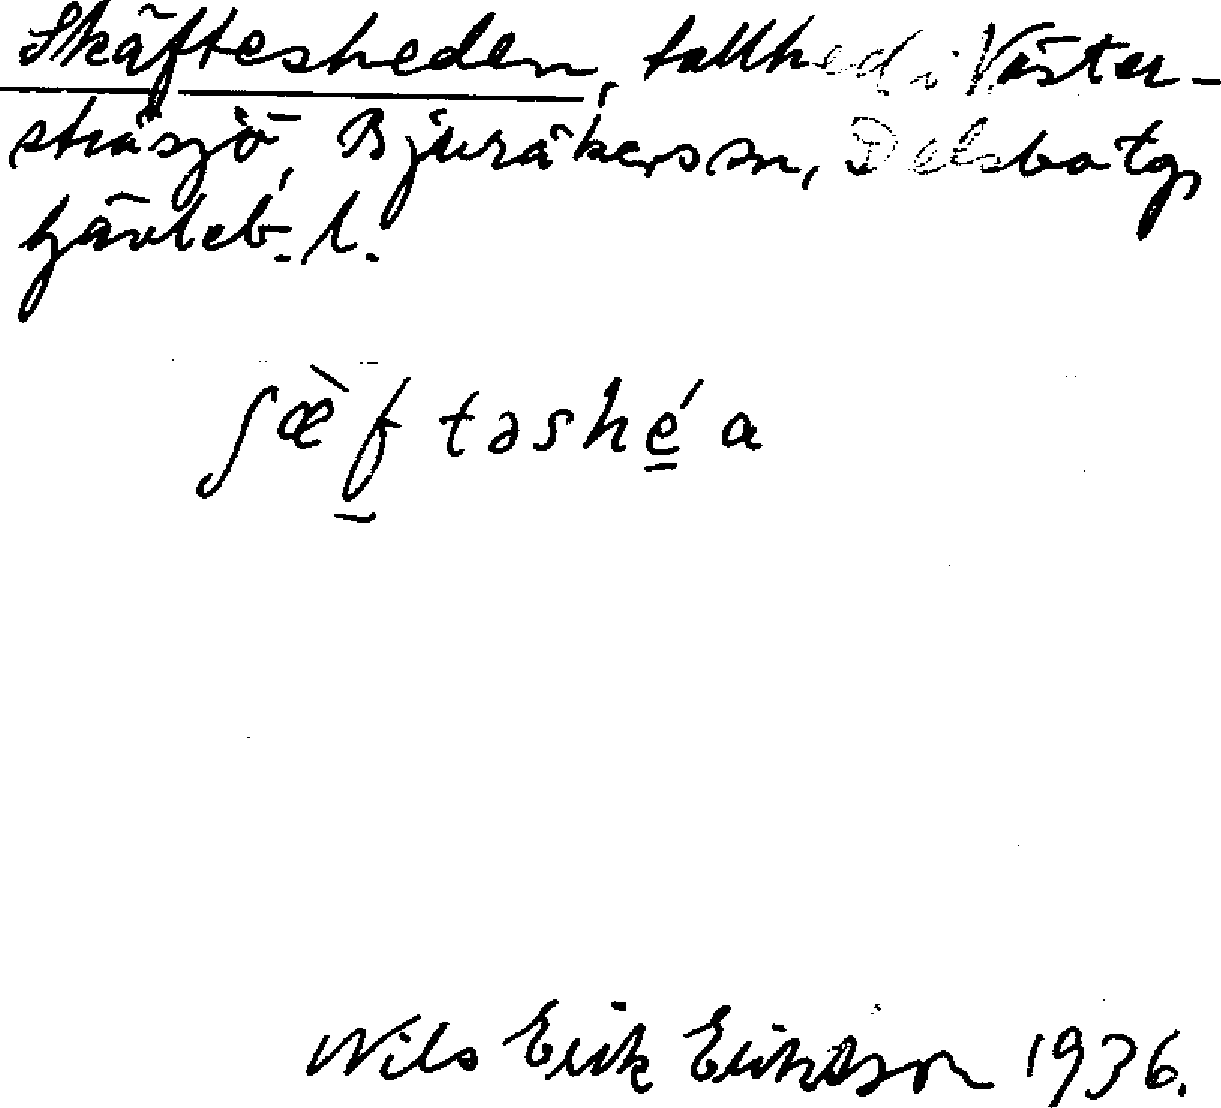 Skäftesheden, tallhed i Väster-
stråsjö, Bjuråkers sn, Delsbo tg,
Gävleb. l.
ʃæ̀f təshé a
Nils Erik Eriksson 1936.